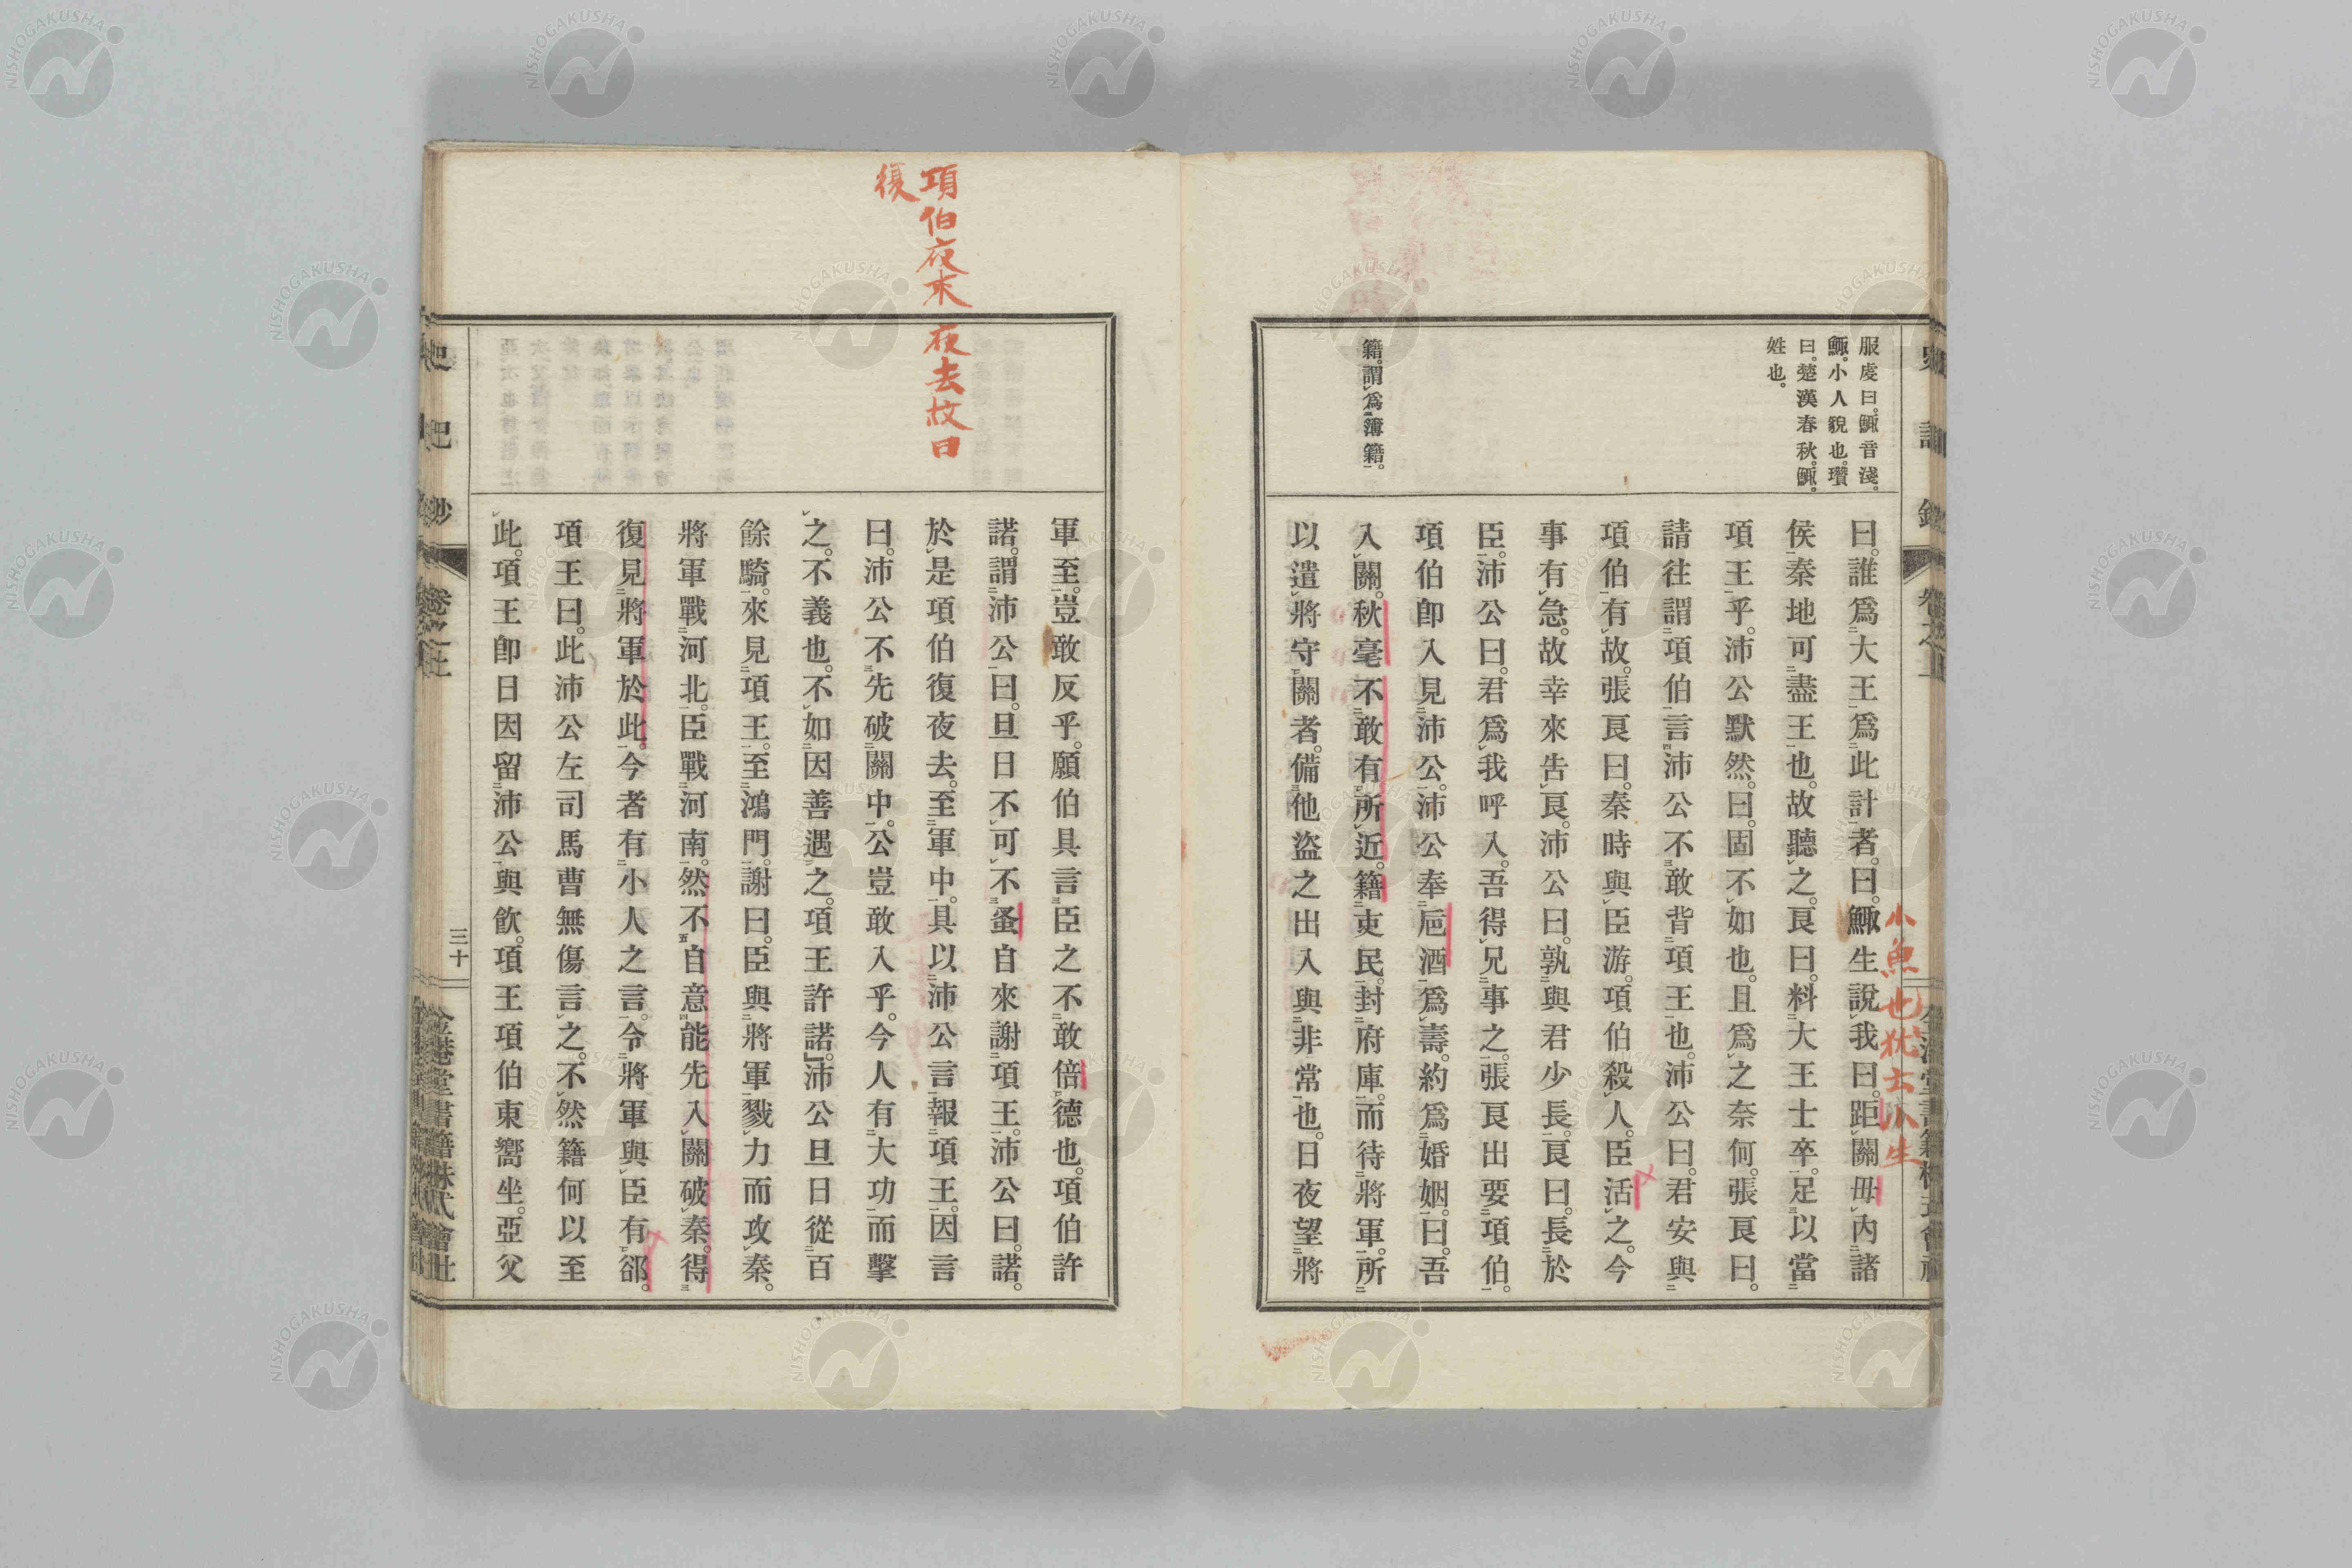 服虔曰。鯫音淺。
鯫。小人貌也。瓚
曰。楚漢春秋。鯫。
姓也。
籍。謂爲簿籍。
曰。誰爲大王爲此計者。曰。鯫生說我曰。距關毋內諸
侯秦地可盡王也。故聽之。良曰。料大王士卒。足以當
項王乎。沛公默然。曰。固不如也。且爲之奈何。張良曰。
請往謂項伯言沛公不敢背項王也。沛公曰。君安與
項伯有故。張良曰。秦時與臣游。項伯殺人。臣活之。今
事有急。故幸來告良。沛公曰。孰與君少長。良曰。長於
臣。沛公曰。君爲我呼入。吾得兄事之。張良出要項伯。
項伯卽入見沛公。沛公奉巵酒爲壽。約爲婚姻。曰。吾
入關。秋毫不敢有所近。籍吏民。封府庫。而待將軍。所
以遣將守關者。備他盜之出入與非常也。日夜望將
小魚也犹云小生
項伯夜來 夜去故曰
復
軍至。豈敢反乎。願伯具言臣之不敢倍德也。項伯許
諾。謂沛公曰。旦日不可不蚤自來謝項王。沛公曰。諾。
於是項伯復夜去。至軍中。具以沛公言報項王。因言
曰。沛公不先破關中。公豈敢入乎。今人有大功而擊
之。不義也。不如因善遇之。項王許諾。沛公旦日從百
餘騎。來見項王。至鴻門。謝曰。臣與將軍戮力而攻秦。
將軍戰河北。臣戰河南。然不自意能先入關破秦。得
復見將軍於此。今者有小人之言。令將軍與臣有郤。
項王曰。此沛公左司馬曹無傷言之。不然籍何以至
此。項王卽日因留沛公與飮。項王項伯東嚮坐。亞父
史記鈔 卷之上
三十
金港堂書籍株式會社